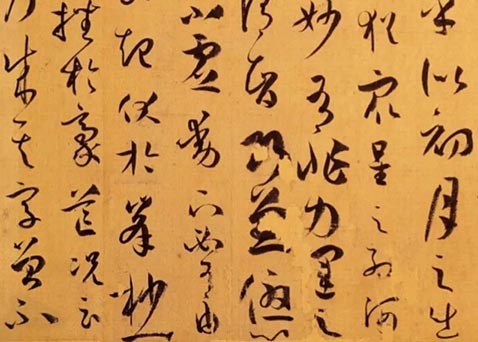 乎似初月之出
猶衆星之列河
妙有非力運之
謂智巧兼優心
不虛動下必有由
起伏於峯杪一
挫於豪芒況云
乃成其字曾不